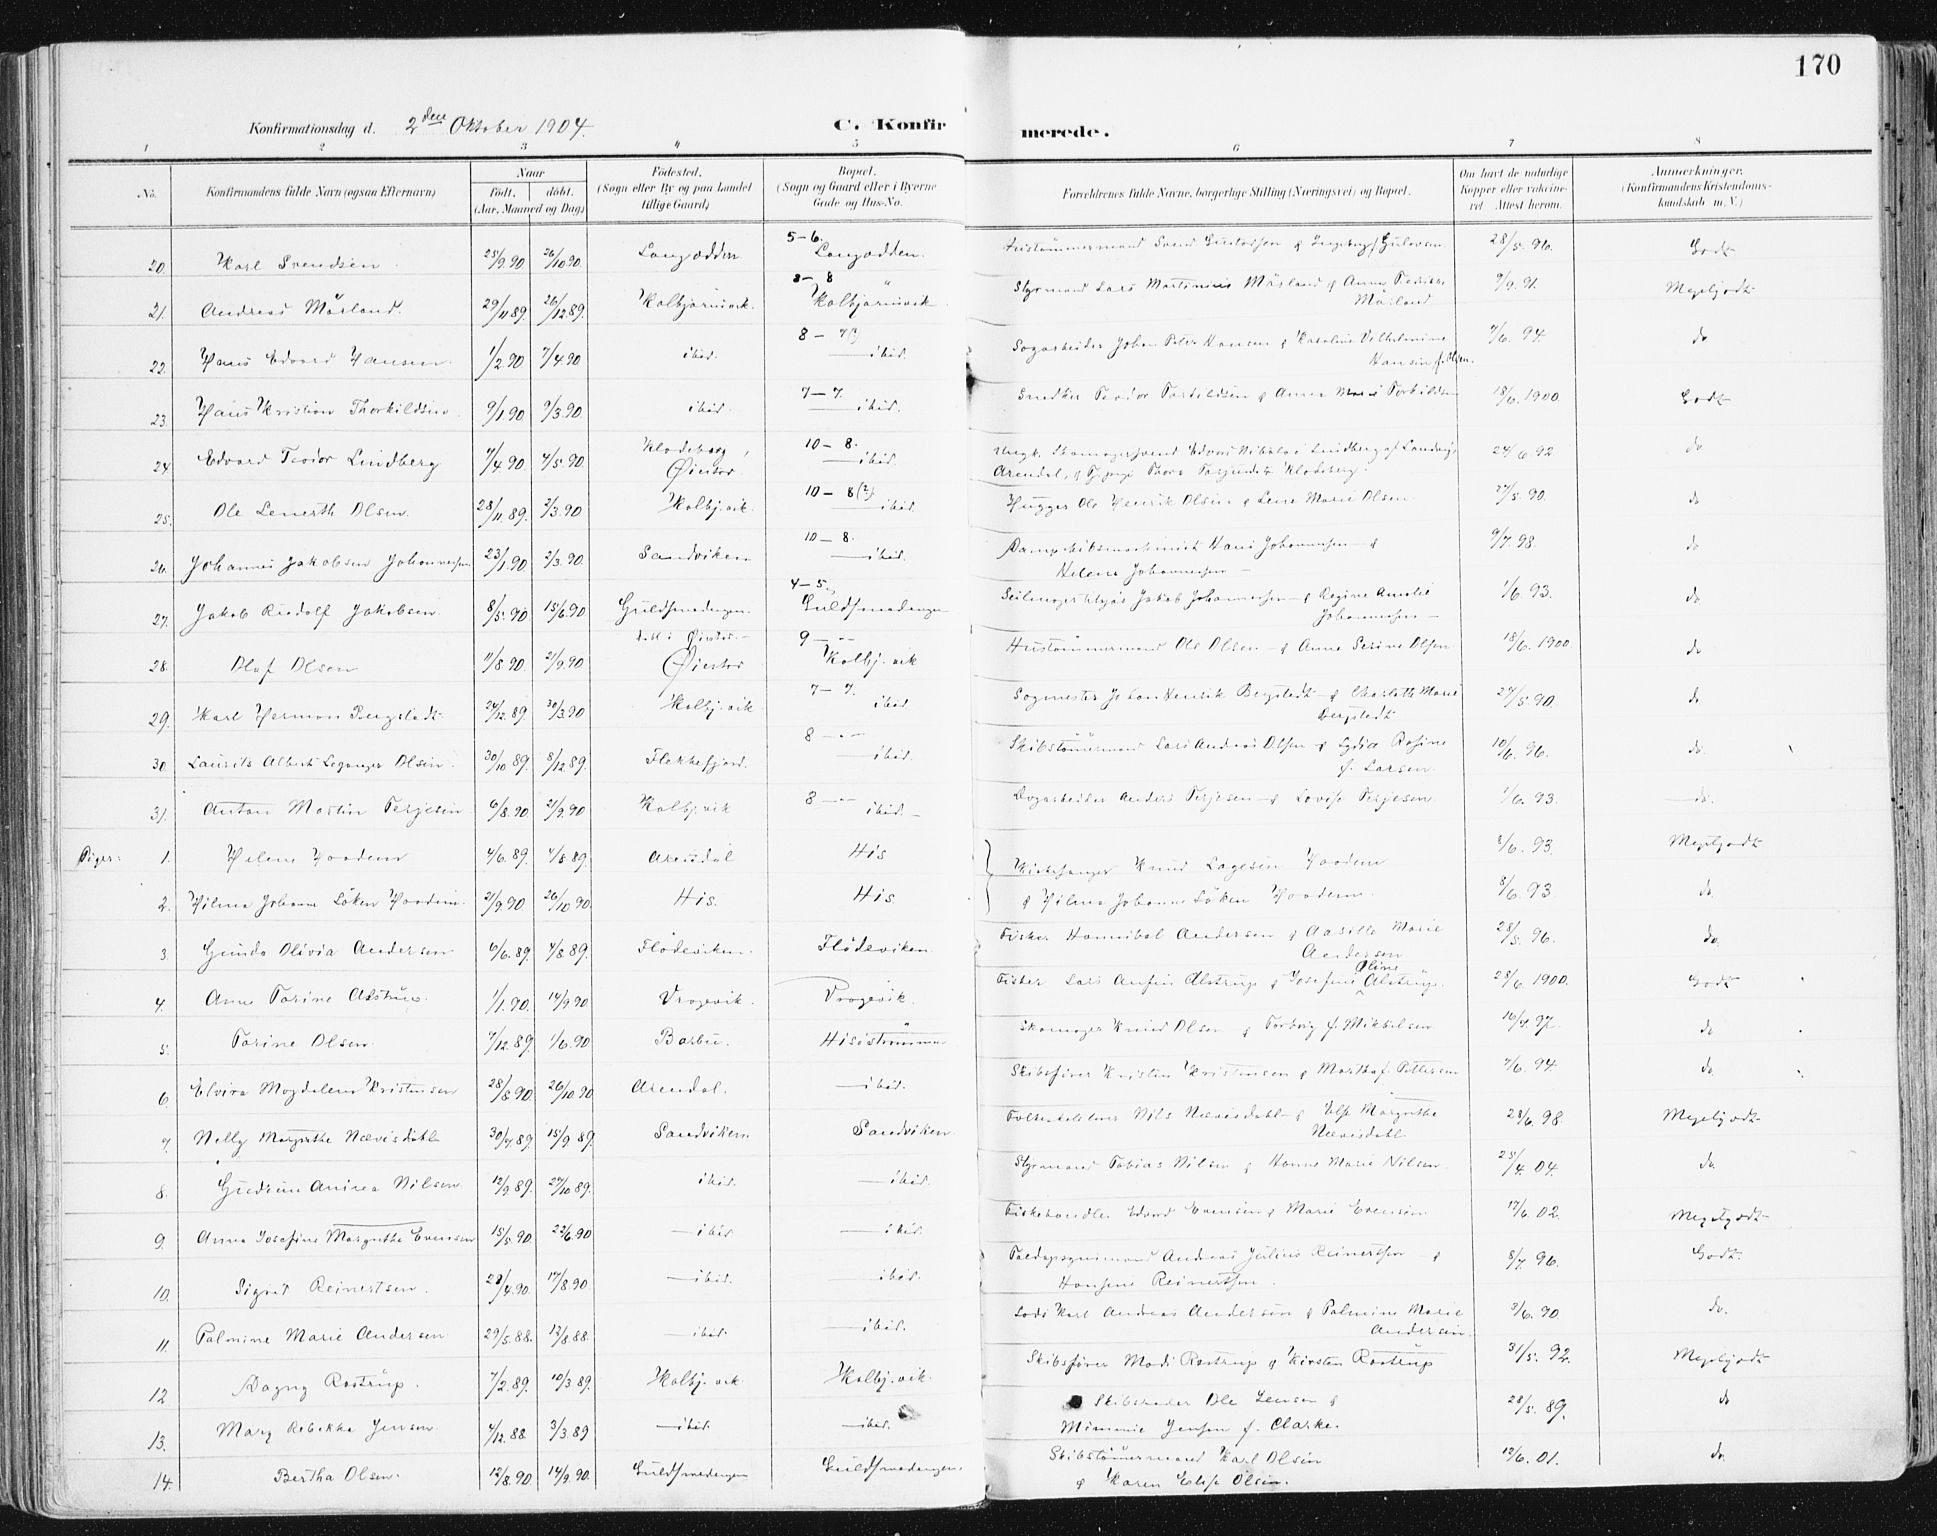 170
Konfirmationsdag d. 2den Oktober 1904.
C. Konfirmerede.
1 2 3 4 5 6 7 8
No. Konfirmandens fulde Navn (ogsaa Efternavn) Naar født, døbt. (Aar, Maaned og Dag) Födested. (Sogn eller By og paa Landet tillige Gaard) Bopæl. (Sogn og Gaard eller i Byerne Gade og Hus-No. Forældrenes fulde Navne, borgerlige Stilling (Næringsvei) og Bopæl. Om havt de naturlige Kopper eller vaccineret. Attest herom. Anmærkninger. (Konfirmandens Kristendomskundskab m. V.)
5-6.
20. Karl Svendsen 25/9.90 26/10 90. Langødden Langodden. 28/5. 96. Godt
3- 8
21. Andreas Mårland. 29/11 89. 26/12.89. Kolbjørnsvik. Kolbjørnsvik Styrmand Lars Martinius Mårland & Anna 9/9. 91. Megetgodt
Mårland
8 -
22. Hans Edvard Hansen. 1/2.90 7/4.90 ibid. —ibid. Johan Peter Hansen & Karoline Vilhelmine 7/6. 94. do
Hansen f. Olsen.
7-7.
23. Hans Kristian Thorkildsen. 9/1.90 9/3.90 ibid. —ibid. Snedker Teodor Torkildsen & Anna Marie Torkildsen 18/6.1900 Godt
10-8.
24 Edvard Teodor Lindberg 7/4.90 4/5.90. Klodeborg, Øiestad —ibid. Lindberg af Landvig 24/6 92 do
Arendal, & Klodeborg.
10- 8(?)
25. Ole Lenerth Olsen. 28/11.89. 2/3.90 Kolbj.vik. —ibid. Hugger Ole Henrik Olsen & Lene Marie Olsen 27/5. 90. do
10-8.
26. Johannes Jakobsen Johannessen 23/1.90. 2/3.90. Sandviken —ibid. Dampskibsmaskinist Hans Johannessen & 9/7. 98. do
Helene Johannessen —
4-5
27. Jakob Rudolf Jakobsen 8/5.90 15/6.90 Guldsmedengen Guldsmedengen Jakob Johannessen & Regine Amalie 1/6. 93. do
Johannessen —
døbt i Øiestad. 9-"
28. Olaf Olsen 11/8.90. 21/9.90 Øiestad Kolbj.vik Hustømmermand Ole Olsen & Anne Serine Olsen 18/6.1900 do
7-7.
29. Karl Herman Bergstedt 24/12.89. 30/3.90 Kolbj.vik ibid. Sagmester Johan Henrik Bergstedt & Charlotte Marie 27/5.90. do
Bergstedt
8-"
30. Laurits Albert Leganger Olsen. 30/10 89. 8/12 89. Flekkefjord. —ibid. Skibstømmermand Lars Andreas Olsen & Lydia Rosine 10/6. 96. do.
f. Larsen.
8-"
31. Anton Martin Terjesen 6/8.90. 21/9.90 Kolbj.vik ibid.— Anders Terjesen & Lovise Terjesen. 1/6. 93. —do.
Piger: 1. Helene Haadem 4/6.89. 4/8 89. Arendal His Kirkesanger Knud Lagesen Haadem 8/6.93. Megetgodt
2. Hilma Johanne Löken Haadem 21/9.90. 26/10 90. His. His & Hilma Johanne Löken Haadem. 8/6.93 do.
3. Gunda Olivia Andersen 6/6.89. 4/8 89. Flödeviken. Flödeviken. Fisker Hannibal Andersen & Aasille Marie 28/5. 96. do.
Andersen
4. Anne Torine Alstrup. 1/1.90. 14/9 90 Vrogevik. Vrogevik. Fisker Lars Alstrup & Josefine Oline Alstrup. 28/6 1900. Godt
5. Torine Olsen. 7/12.89. 1/6.90 Barbu. Skomager Knud Olsen & Torborg f. Mikkelsen 16/7.97. do
6. Elvira Magdalene Kristensen 28/8.90. 26/10 90 Arendal. —ibid. Skibsfører Kristen Kristensen & Martha f. Pettersen 7/6. 94. do.
7. Nelly Margrethe Nævisdahl 30/7.89 15/9.89. Sandviken. Sandviken. Nils Nævisdahl & Else Margrethe 28/6. 98. Megetgodt
Nævisdahl.
8. Gudrun Anirea Nilsen 12/9.89. 27/10 89. ibid. —ibid. Styrmand Tobias Nilsen & Hanne Marie Nilsen. 25/4. 04. do.
9. Anna Josefine Margrethe Evensen 15/5.90. 22/6.90 —ibid —ibid. Fiskehandler Edvard Evensen & Marie Evensen 17/6. 02. Megetgodt
10. Sigrid Reinertsen. 28/4.90. 17/8.90 —ibid. —ibid. Andreas Julius Reinertsen & 8/7. 96. Godt.
Hansine Reinertsen.
11. Palmine Marie Andersen 29/5.88. 12/8 88. —ibid. —ibid. Lods Karl Andreas Andersen & Palmine Marie 3/6. 90. do.
Andersen.
12 Dagny Rostrup. 7/2.89. 10/3 89. Kolbj.vik Kolbj.vik. Skibsfører Mads Rostrup & Kirsten Rostrup 31/5. 92. Megetgodt
13. Mary Rebekka Jensen. 4/12.88 3/3.89 —ibid. —ibid. Skibsreder Ole Jensen & 28/5. 89. do
Mimmie Jensen f. Clarke.
14. Bertha Olsen. 12/8.90. 14/9.90. Guldsmedengen Guldsmedengen. Skibstömmermand Karl Olsen 12/6. 01. do.
& Karen Elise Olsen.